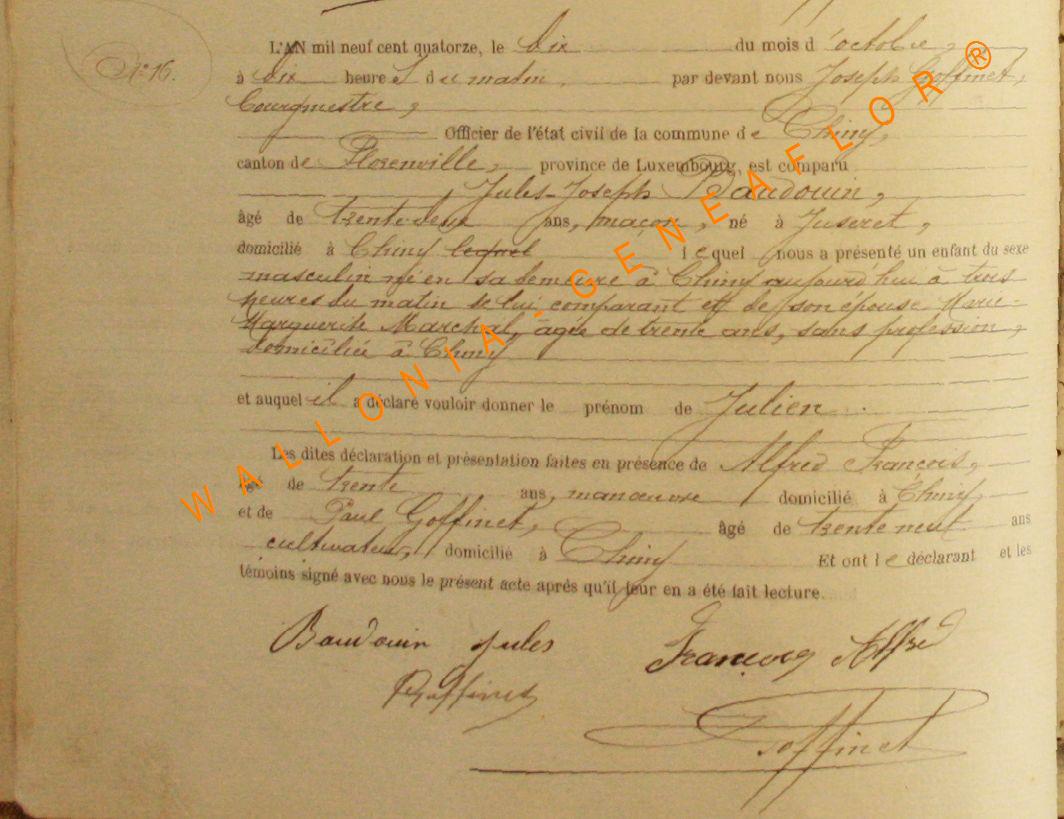 N° 16.
L'AN mil neuf cent quatorze, le dix du mois d'octobre,
à dix heures du matin par devant nous Joseph Goffinet,
bourgmestre,
Officier de l'état civil de la commune de Chiny,
canton de Florenville, province de Luxembourg, est comparu
Jules-Joseph Baudouin,
âgé de trente-deux ans, maçon, né à Juseret,
domicilié à Chiny lequel lequel nous a présenté un enfant du sexe
masculin né en sa demeure à Chiny aujourd'hui à trois
heures du matin de lui comparant et de son épouse Marie-
Marguerite Marchal, âgée de trente ans, sans profession,
domiciliée à Chiny
et auquel il a déclaré vouloir donner le prénom de Julien.
Les dites déclaration et présentation faites en présence de Alfred François,
de trente ans, manœuvre domicilié à Chiny,
et de Paul Goffinet, âgé de trente neuf ans
cultivateur, domicilié à Chiny Et ont le déclarant et les
témoins signé avec nous le présent acte après qu'il leur en a été fait lecture.
Baudouin Jules François Alfred
Goffinet
Goffinet
WALLONIA-GENEAFLOR®